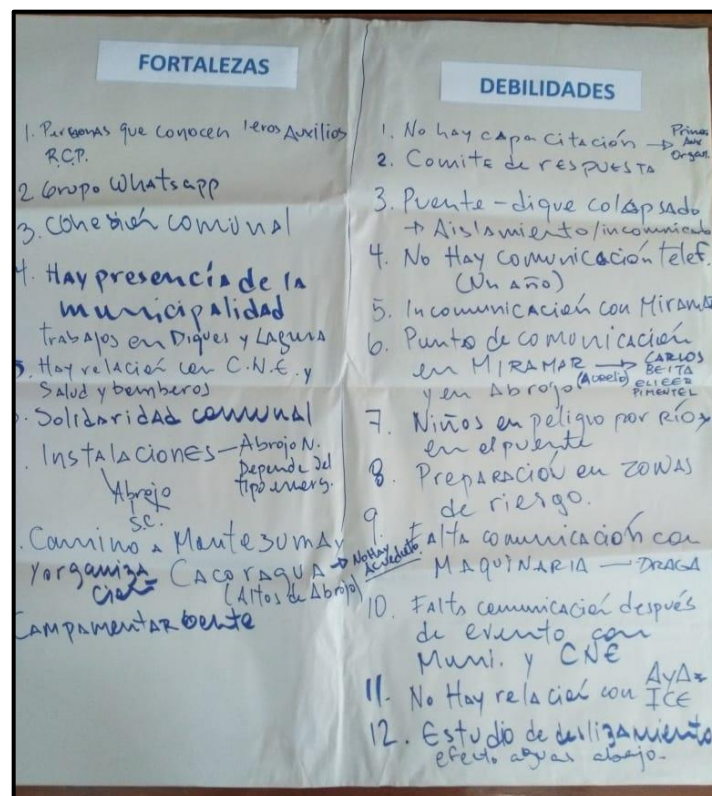 FORTALEZAS
1. Personas que conocen 1eros Auxilios
R.C.P.
2 Grupo Whatsapp
3. Cohesión comunal
4. Hay presencia de la
municipalidad
Trabajos en Diques y Laguna
5. Hay relación con C.N.E. y
Salud y bomberos
. Solidaridad comunal
. Instalaciones - Abrojo N.
Depende del
tipo emerg.
Abrojo
S.C.
. Camino a Montezuma y
y organiza
ción
CACORAGUA → No Hay
Acueducto
(Altos de Abrojo)
CAMPAMENTAR gente
DEBILIDADES
1. No hay capacitación → Primos
Aux
Organ.
2. Comite de respuesta
3. Puente - dique colapsado
→ Aislamiento/incomunicado
4. No Hay comunicación telef.
(Un Año)
5. Incomunicación con Miramar
6. Punto de comunicación
en MIRAMAR → CARLOS
BEITA
y en Abrojo (Aurelio) ELIECER
PIMENTEL
7. Niños en peligro por RÍO y
en el puente
8. Preparación en zonas
de riesgo.
9. Falta comunicación con
MAQUINARIA — DRAGA
10. Falta comunicación después
de evento con
Muni. y CNE
11. No Hay relación con AyA
ICE
12. Estudio de deslizamiento
efecto aguas abajo.